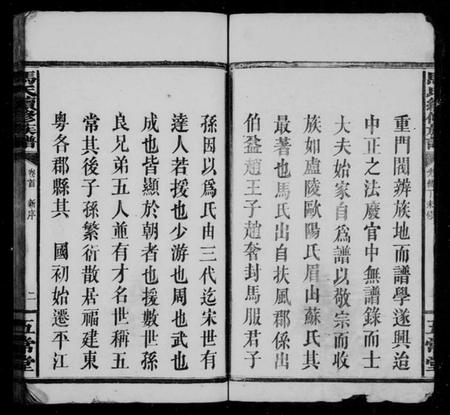 重門閥辨族地而譜學遂興迨
中正之法廢官中無譜錄而士
大夫始家自為譜以敬宗而收
族如盧陵歐陽氏眉山蘇氏其
最著也馬氏出自扶風郡係出
伯益趙王子趙奢封馬服君子
孫因以為氏由三代迄宋世有
達人若援也少游也周也武也
成也皆顯於朝者也援數世孫
良兄弟五人並有才名世稱五
常其後子孫繁衍散居福建東
粵各郡縣其 國初始遷平江
馬氏續修族譜
卷首 新序
二
五常堂